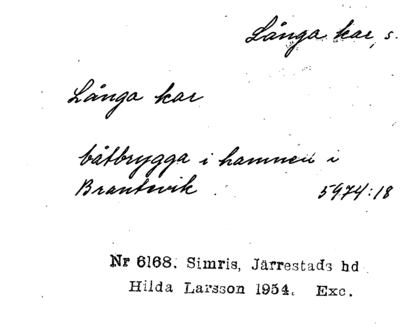 Långa kar, s.
Långa kar
båtbrygga i hamnen i
Brantevik 5974:18
Nr 6168. Simris, Järrestads hd
Hilda Larsson 1954. Exc.